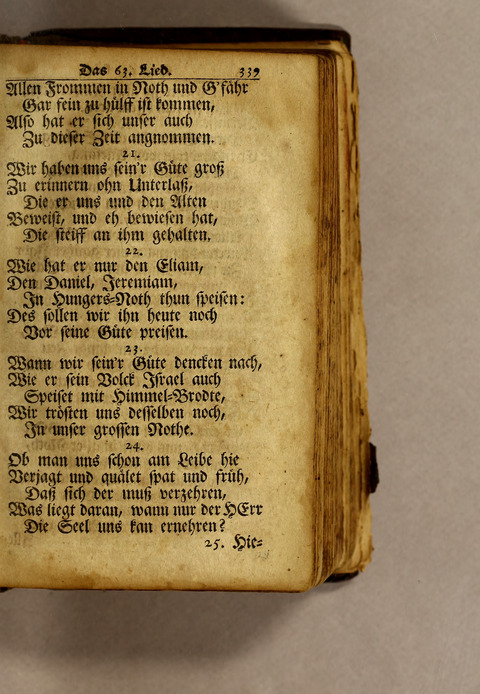 Das 63. Lied. 339
Allen Frommen in Noth und G'fähr
Gar fein zu hülff ist kommen,
Also hat er sich unser auch
Zu dieser Zeit angnommen.
21.
Wir haben uns sein'r Güte groß
Zu erinnern ohn Unterlaß,
Die er uns und den Alten
Beweist, und eh bewiesen hat,
Die steiff an ihm gehalten.
22.
Wie hat er nur den Eliam,
Den Daniel, Jeremiam,
In Hungers-Noth thun speisen:
Des sollen wir ihn heute noch
Vor seine Güte preisen.
23.
Wann wir sein'r Güte dencken nach,
Wie er sein Volck Israel auch
Speiset mit Himmel-Brodte,
Wir trösten uns desselben noch,
In unser grossen Nothe.
24.
Ob man uns schon am Leibe hie
Verjagt und quälet spat und früh,
Daß sich der muß verzehren,
Was liegt daran, wann nur der HErr
Die Seel uns kan ernehren?
25. Hie-